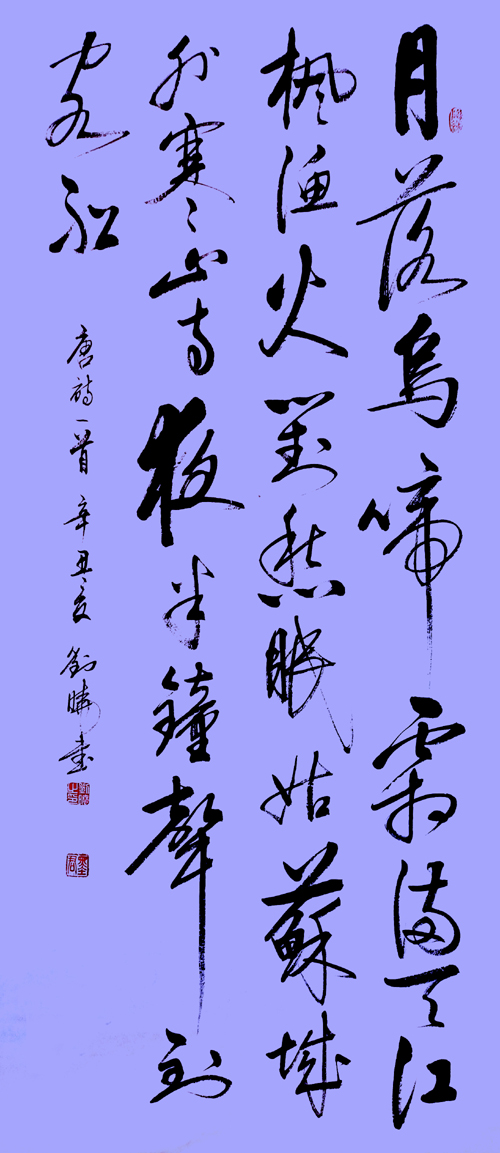 月落烏啼霜滿天江
楓漁火對愁眠姑蘇城
外寒山寺夜半鐘聲到
客船
唐詩一首 辛丑夏 劉書